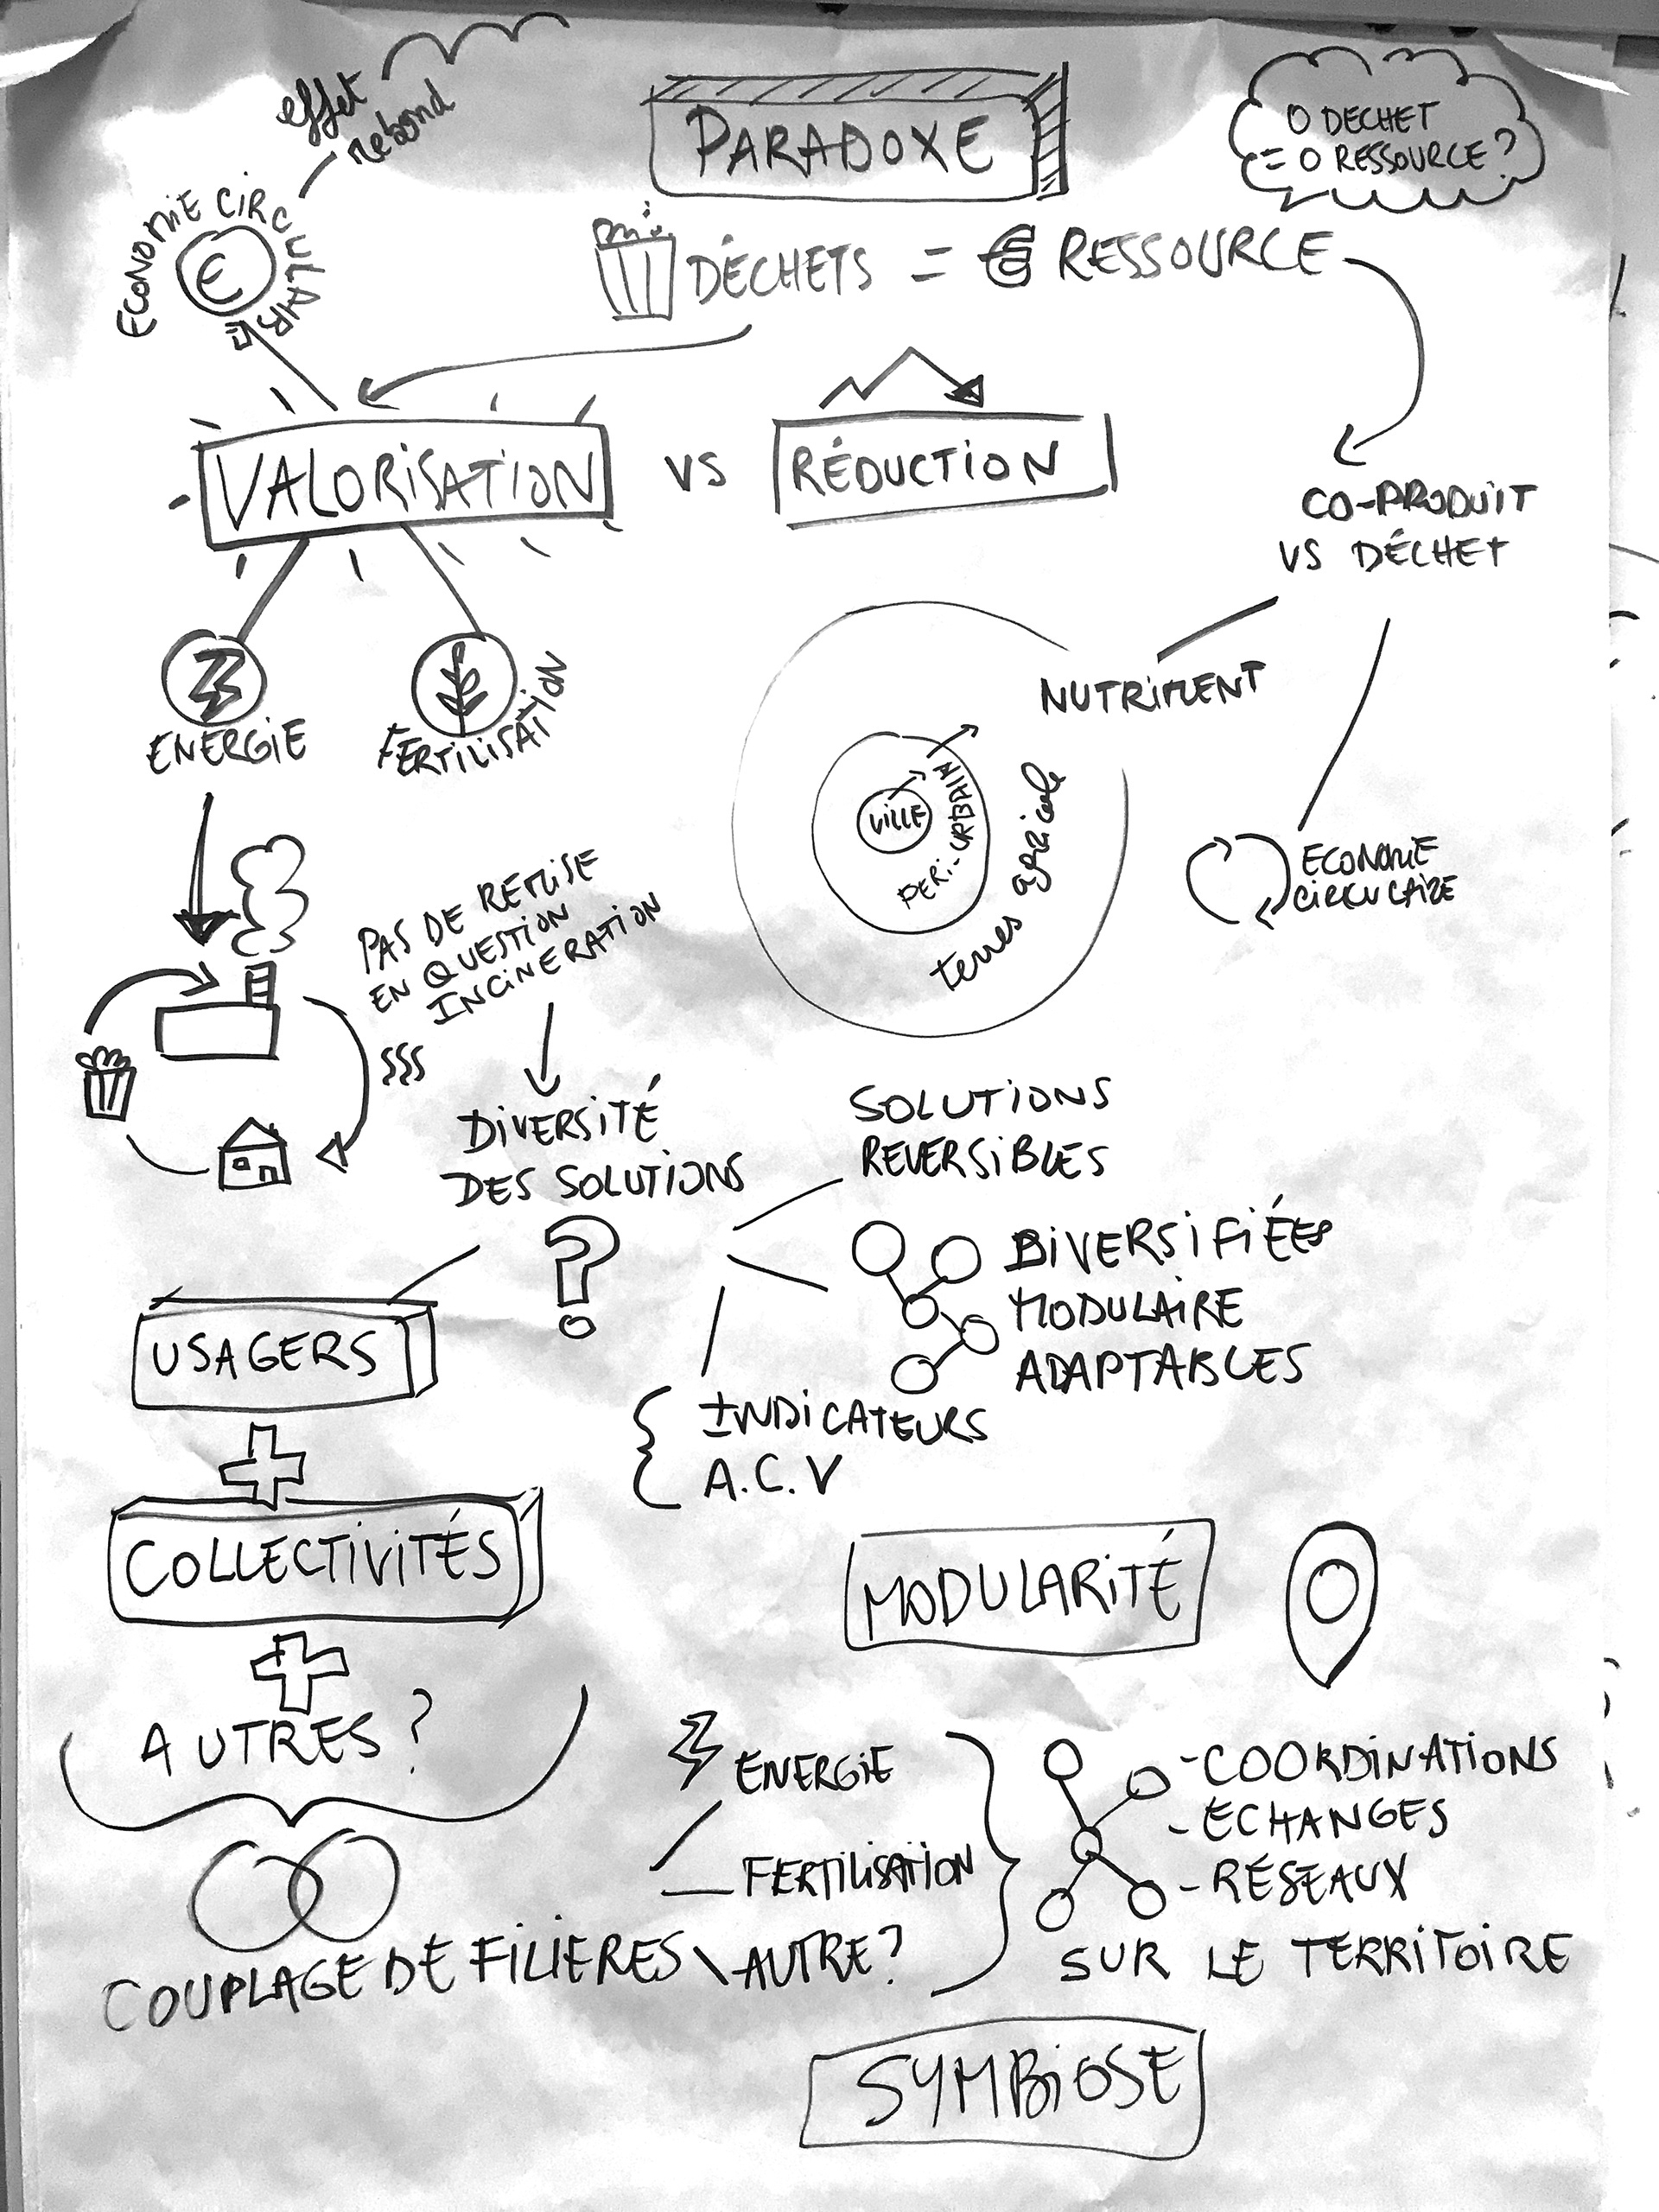 effet
rebond
PARADOXE
0 DECHET
= 0 RESSOURCE?
ECONOMIE CIRCULAIRE
€
DÉCHETS = € RESSOURCE
VALORISATION
VS
RÉDUCTION
CO-PRODUIT
VS DÉCHET
ENERGIE
FERTILISATION
NUTRIMENT
VILLE
PERI-URBAIN
terres agricole
ECONOMIE
CIRCULAIRE
PAS DE REMISE
EN QUESTION
INCINERATION
DIVERSITÉ
DES SOLUTIONS
?
SOLUTIONS
REVERSIBLES
DIVERSIFIÉES
MODULAIRE
ADAPTABLES
USAGERS
INDICATEURS
A.C.V
COLLECTIVITÉS
MODULARITÉ
AUTRES?
ENERGIE
FERTILISATION
AUTRE?
COUPLAGE DE FILIERES
-COORDINATIONS
-ECHANGES
-RÉSEAUX
SUR LE TERRITOIRE
SYMBIOSE